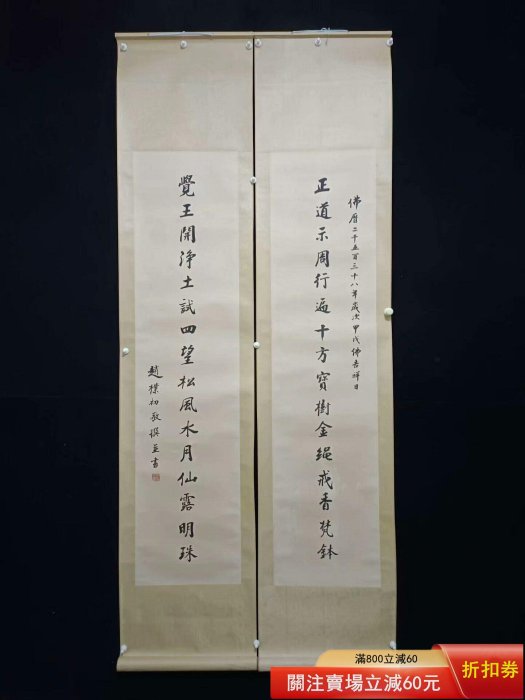 佛曆二千五百三十八年歲次甲戌佛吉祥日
正道示周行遍十方寶樹金繩戒香梵鉢
覺王開淨土試四望松風水月仙露明珠
趙樸初敬撰並書
滿800立減60
關注賣場立減60元
折扣券